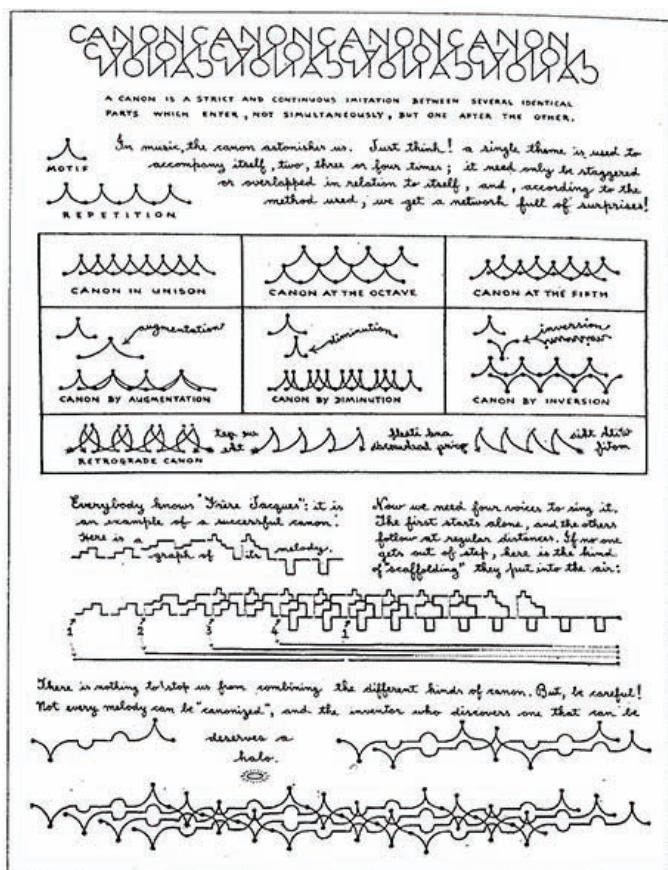 CANONCANONCANONCANON
CANONCANONCANONCANON
A CANON IS A STRICT AND CONTINUOUS IMITATION BETWEEN SEVERAL IDENTICAL
PARTS WHICH ENTER, NOT SIMULTANEOUSLY, BUT ONE AFTER THE OTHER.
MOTIF
REPETITION
In music, the canon astonishes us. Just think! a single theme is used to
accompany itself, two, three or four times; it need only be staggered
or overlapped in relation to itself, and, according to the
method used, we get a network full of surprises!
CANON IN UNISON
CANON AT THE OCTAVE
CANON AT THE FIFTH
augmentation
CANON BY AUGMENTATION
diminution
CANON BY DIMINUTION
inversion
CANON BY INVERSION
RETROGRADE CANON
With this
motif
and itself
we get
the
Everybody knows "Frère Jacques": it is
an example of a successful canon.
Here is a
graph of its melody.
Now we need four voices to sing it.
The first starts alone, and the others
follow at regular distances. If no one
gets out of step, here is the kind
of "scaffolding" they put into the air:
1 2 3 4 1
There is nothing to stop us from combining the different kinds of canon. But, be careful!
Not every melody can be "canonized", and the inventor who discovers one that can be
deserves a
halo.